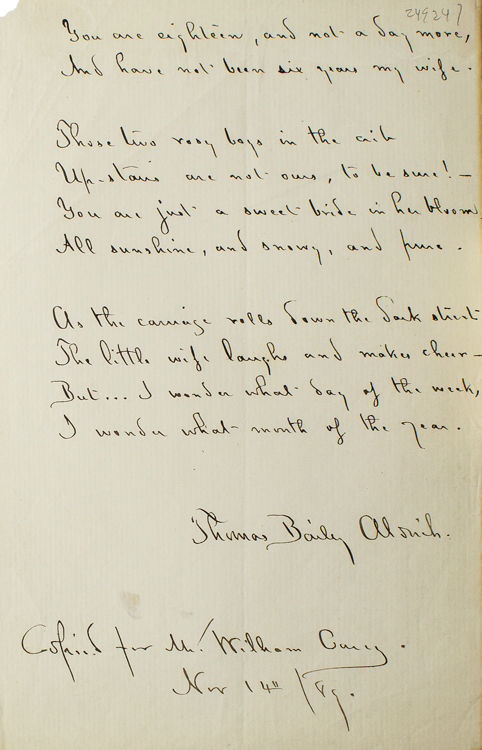 249247
You are eighteen, and not a day more,
And have not been six years my wife.
Those two rosy boys in the crib
Up-stairs are not ours, to be sure! —
You are just a sweet bride in her bloom,
All sunshine, and snowy, and pure.
As the carriage rolls down the dark street
The little wife laughs and makes cheer —
But... I wonder what day of the week,
I wonder what month of the year.
Thomas Bailey Aldrich.
Copied for Mr. William Carey.
Nov 14" /89.